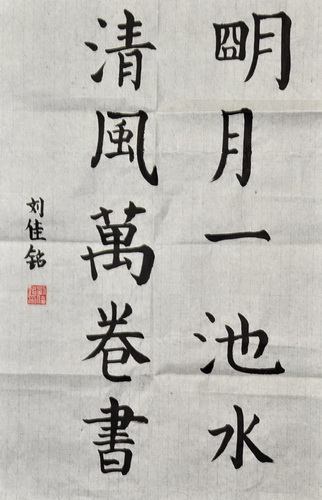 明月一池水
清風萬卷書
刘佳銘